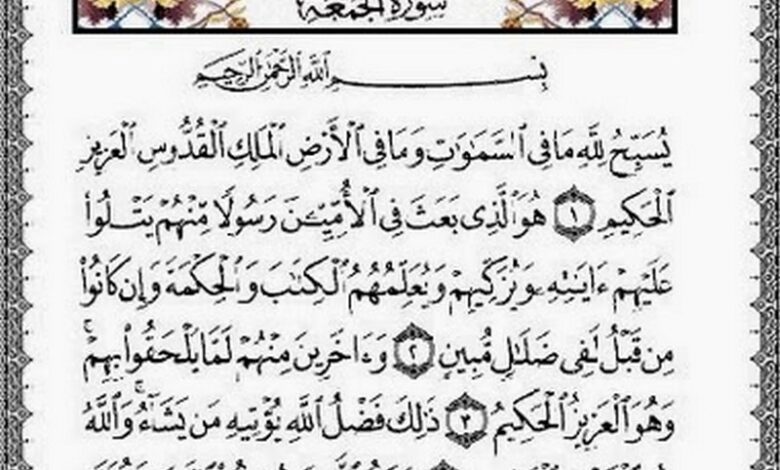 سُورَةُ الْجُمُعَةِ
بِسْمِ ٱللَّهِ ٱلرَّحْمَٰنِ ٱلرَّحِيمِ
يُسَبِّحُ لِلَّهِ مَا فِي ٱلسَّمَٰوَٰتِ وَمَا فِي ٱلْأَرْضِ ٱلْمَلِكِ ٱلْقُدُّوسِ ٱلْعَزِيزِ
ٱلْحَكِيمِ ١ هُوَ ٱلَّذِي بَعَثَ فِي ٱلْأُمِّيِّـۧنَ رَسُولًا مِّنْهُمْ يَتْلُوا۟
عَلَيْهِمْ ءَايَٰتِهِۦ وَيُزَكِّيهِمْ وَيُعَلِّمُهُمُ ٱلْكِتَٰبَ وَٱلْحِكْمَةَ وَإِن كَانُوا۟
مِن قَبْلُ لَفِي ضَلَٰلٍ مُّبِينٍ ٢ وَءَاخَرِينَ مِنْهُمْ لَمَّا يَلْحَقُوا۟ بِهِمْ ۚ
وَهُوَ ٱلْعَزِيزُ ٱلْحَكِيمُ ٣ ذَٰلِكَ فَضْلُ ٱللَّهِ يُؤْتِيهِ مَن يَشَآءُ ۚ وَٱللَّهُ